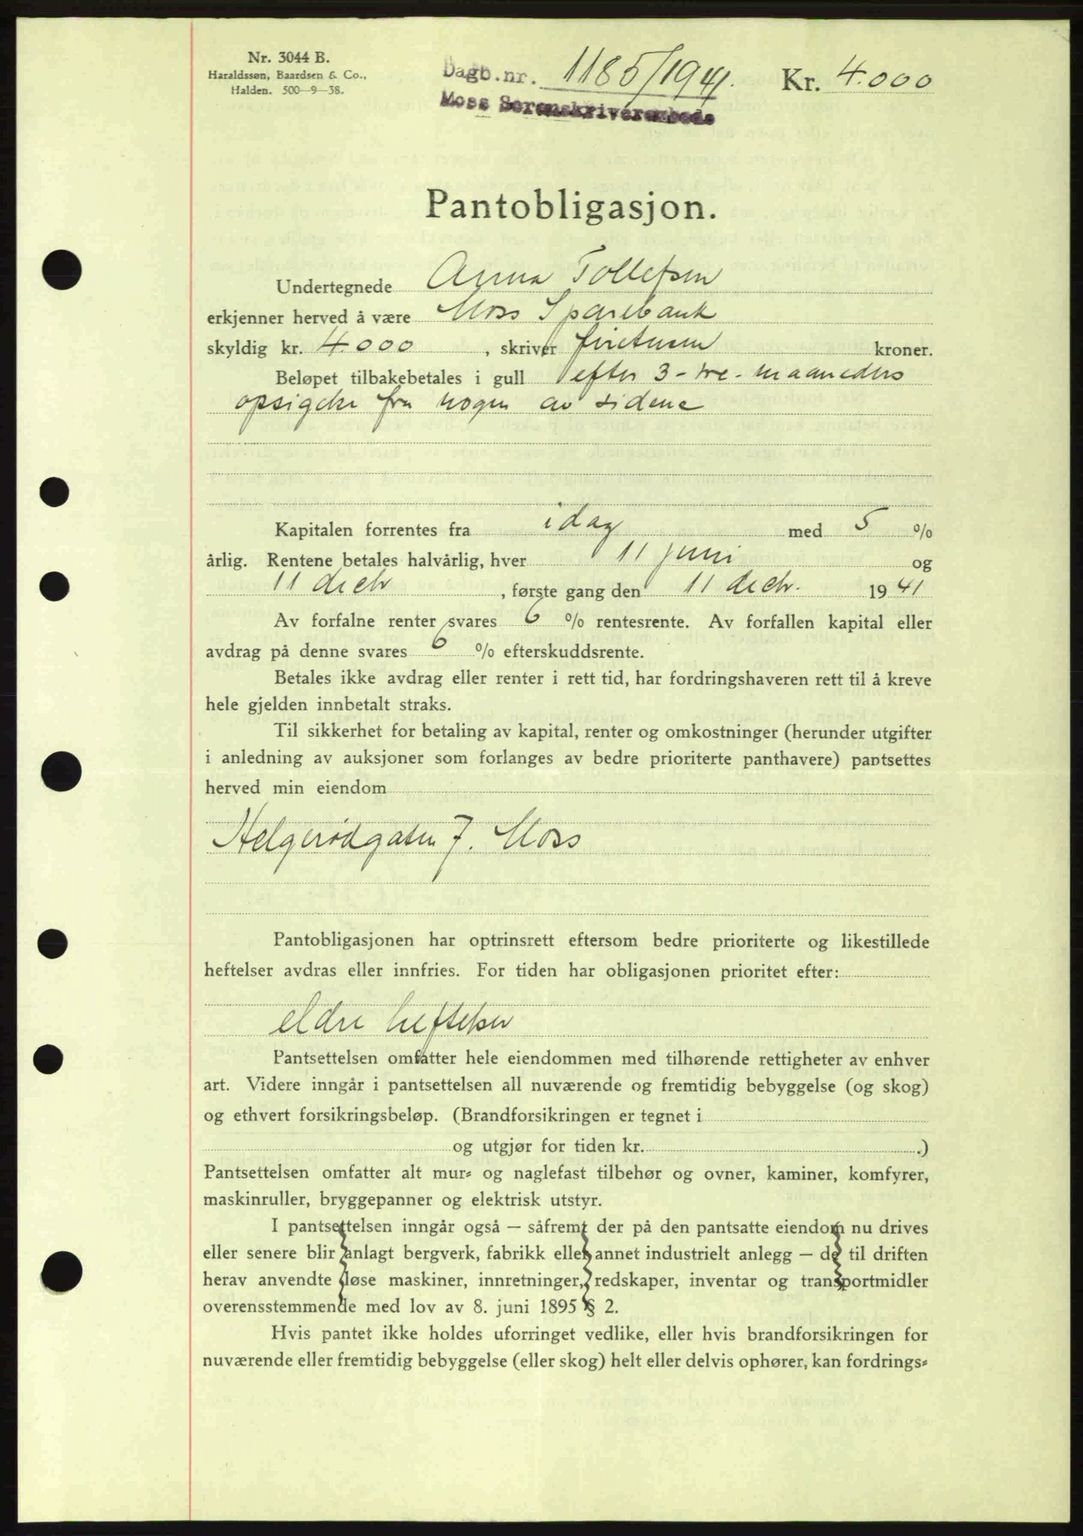 Nr. 3044 B.
Haraldssøn, Baardsen & Co.,
Halden. 500—9—38.
Dagb.nr. 1185/1941.
Moss Sorenskriverembede
Kr. 4.000
Pantobligasjon.
Undertegnede Anna Tollefsen
erkjenner herved å være Moss Sparebank
skyldig kr. 4.000, skriver firetusen kroner.
Beløpet tilbakebetales i gull efter 3 - tre - maaneders
opsigelse fra nogen av sidene
Kapitalen forrentes fra idag med 5 %
årlig. Rentene betales halvårlig, hver 11 juni og
11 decbr, første gang den 11 decbr. 1941
Av forfalne renter svares 6 % rentesrente. Av forfallen kapital eller
avdrag på denne svares 6 % efterskuddsrente.
Betales ikke avdrag eller renter i rett tid, har fordringshaveren rett til å kreve
hele gjelden innbetalt straks.
Til sikkerhet for betaling av kapital, renter og omkostninger (herunder utgifter
i anledning av auksjoner som forlanges av bedre prioriterte panthavere) pantsettes
herved min eiendom
Helgerødgaten 7. Moss
Pantobligasjonen har optrinsrett eftersom bedre prioriterte og likestillede
heftelser avdras eller innfries. For tiden har obligasjonen prioritet efter:
eldre heftelser
Pantsettelsen omfatter hele eiendommen med tilhørende rettigheter av enhver
art. Videre inngår i pantsettelsen all nuværende og fremtidig bebyggelse (og skog)
og ethvert forsikringsbeløp. (Brandforsikringen er tegnet i
og utgjør for tiden kr. .)
Pantsettelsen omfatter alt mur- og naglefast tilbehør og ovner, kaminer, komfyrer,
maskinruller, bryggepanner og elektrisk utstyr.
I pantsettelsen inngår også — såfremt der på den pantsatte eiendom nu drives
eller senere blir anlagt bergverk, fabrikk eller annet industrielt anlegg — de til driften
herav anvendte løse maskiner, innretninger, redskaper, inventar og transportmidler
overensstemmende med lov av 8. juni 1895 § 2.
Hvis pantet ikke holdes uforringet vedlike, eller hvis brandforsikringen for
nuværende eller fremtidig bebyggelse (eller skog) helt eller delvis ophører, kan fordrings-